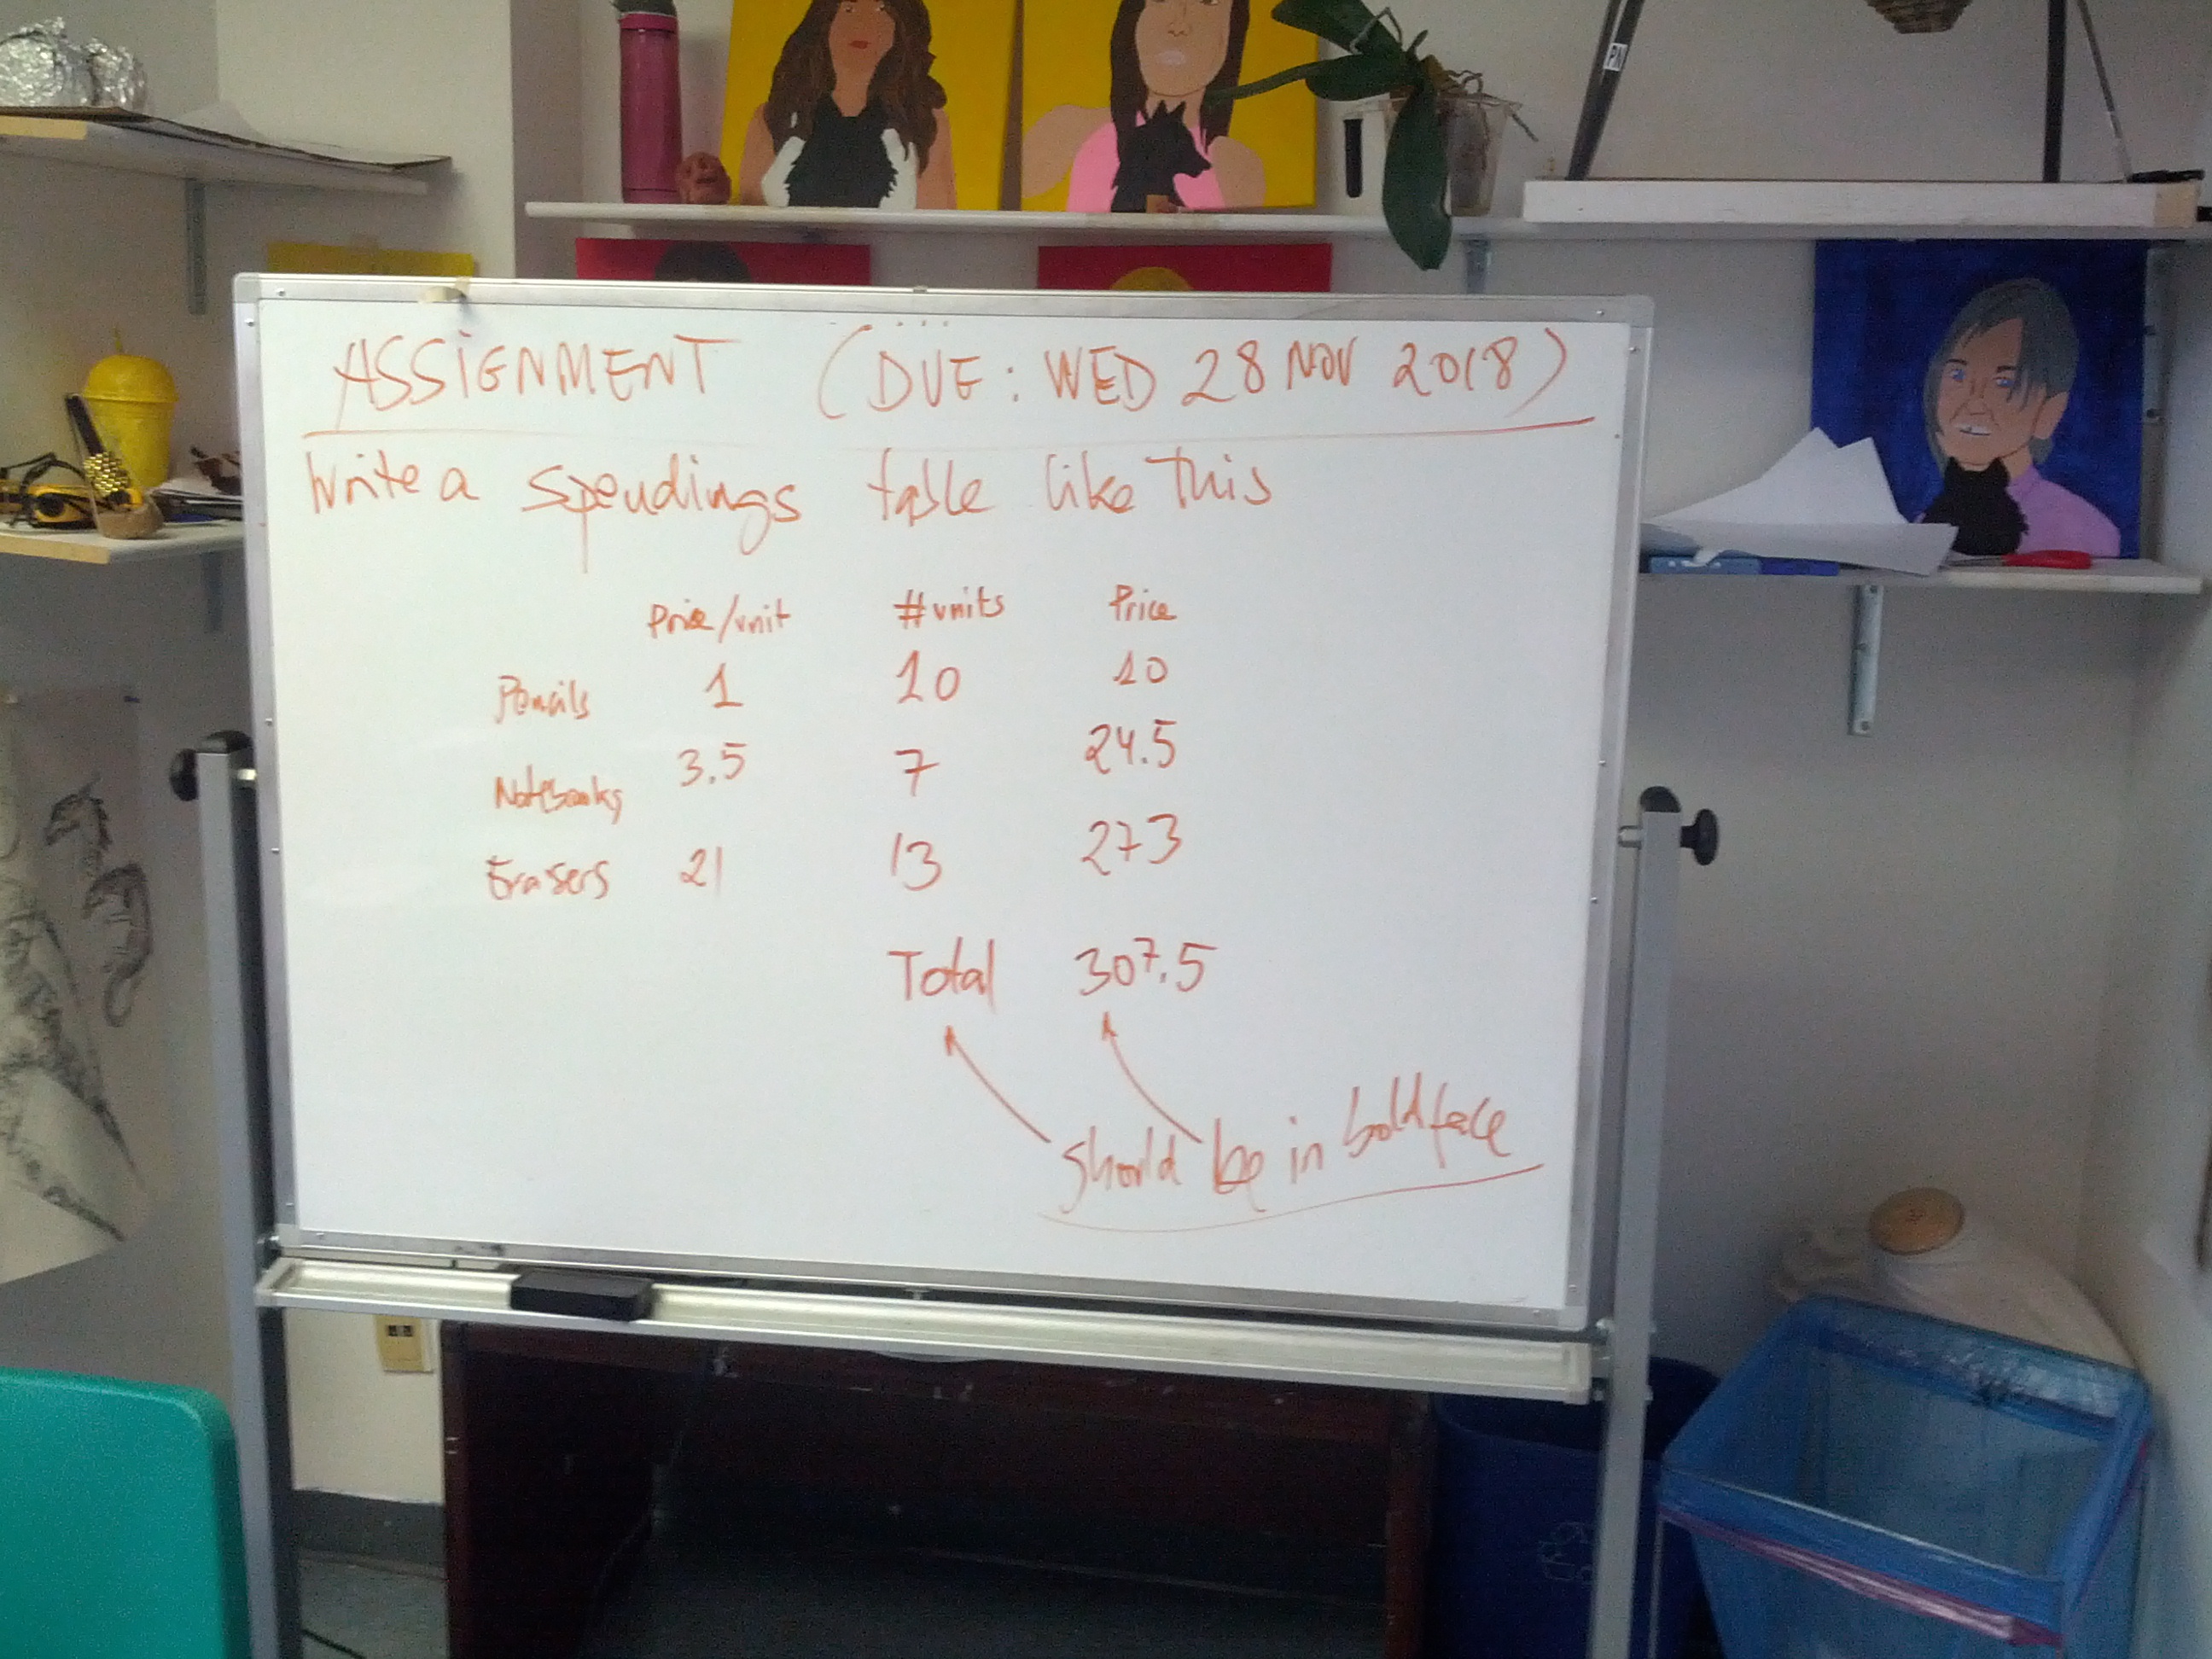 ASSIGNMENT (DUE: WED 28 NOV 2018)
Write a spendings table like this
Price/unit #units Price
Pencils 1 10 10
Notebooks 3.5 7 24.5
Erasers 21 13 273
Total 307.5
should be in boldface